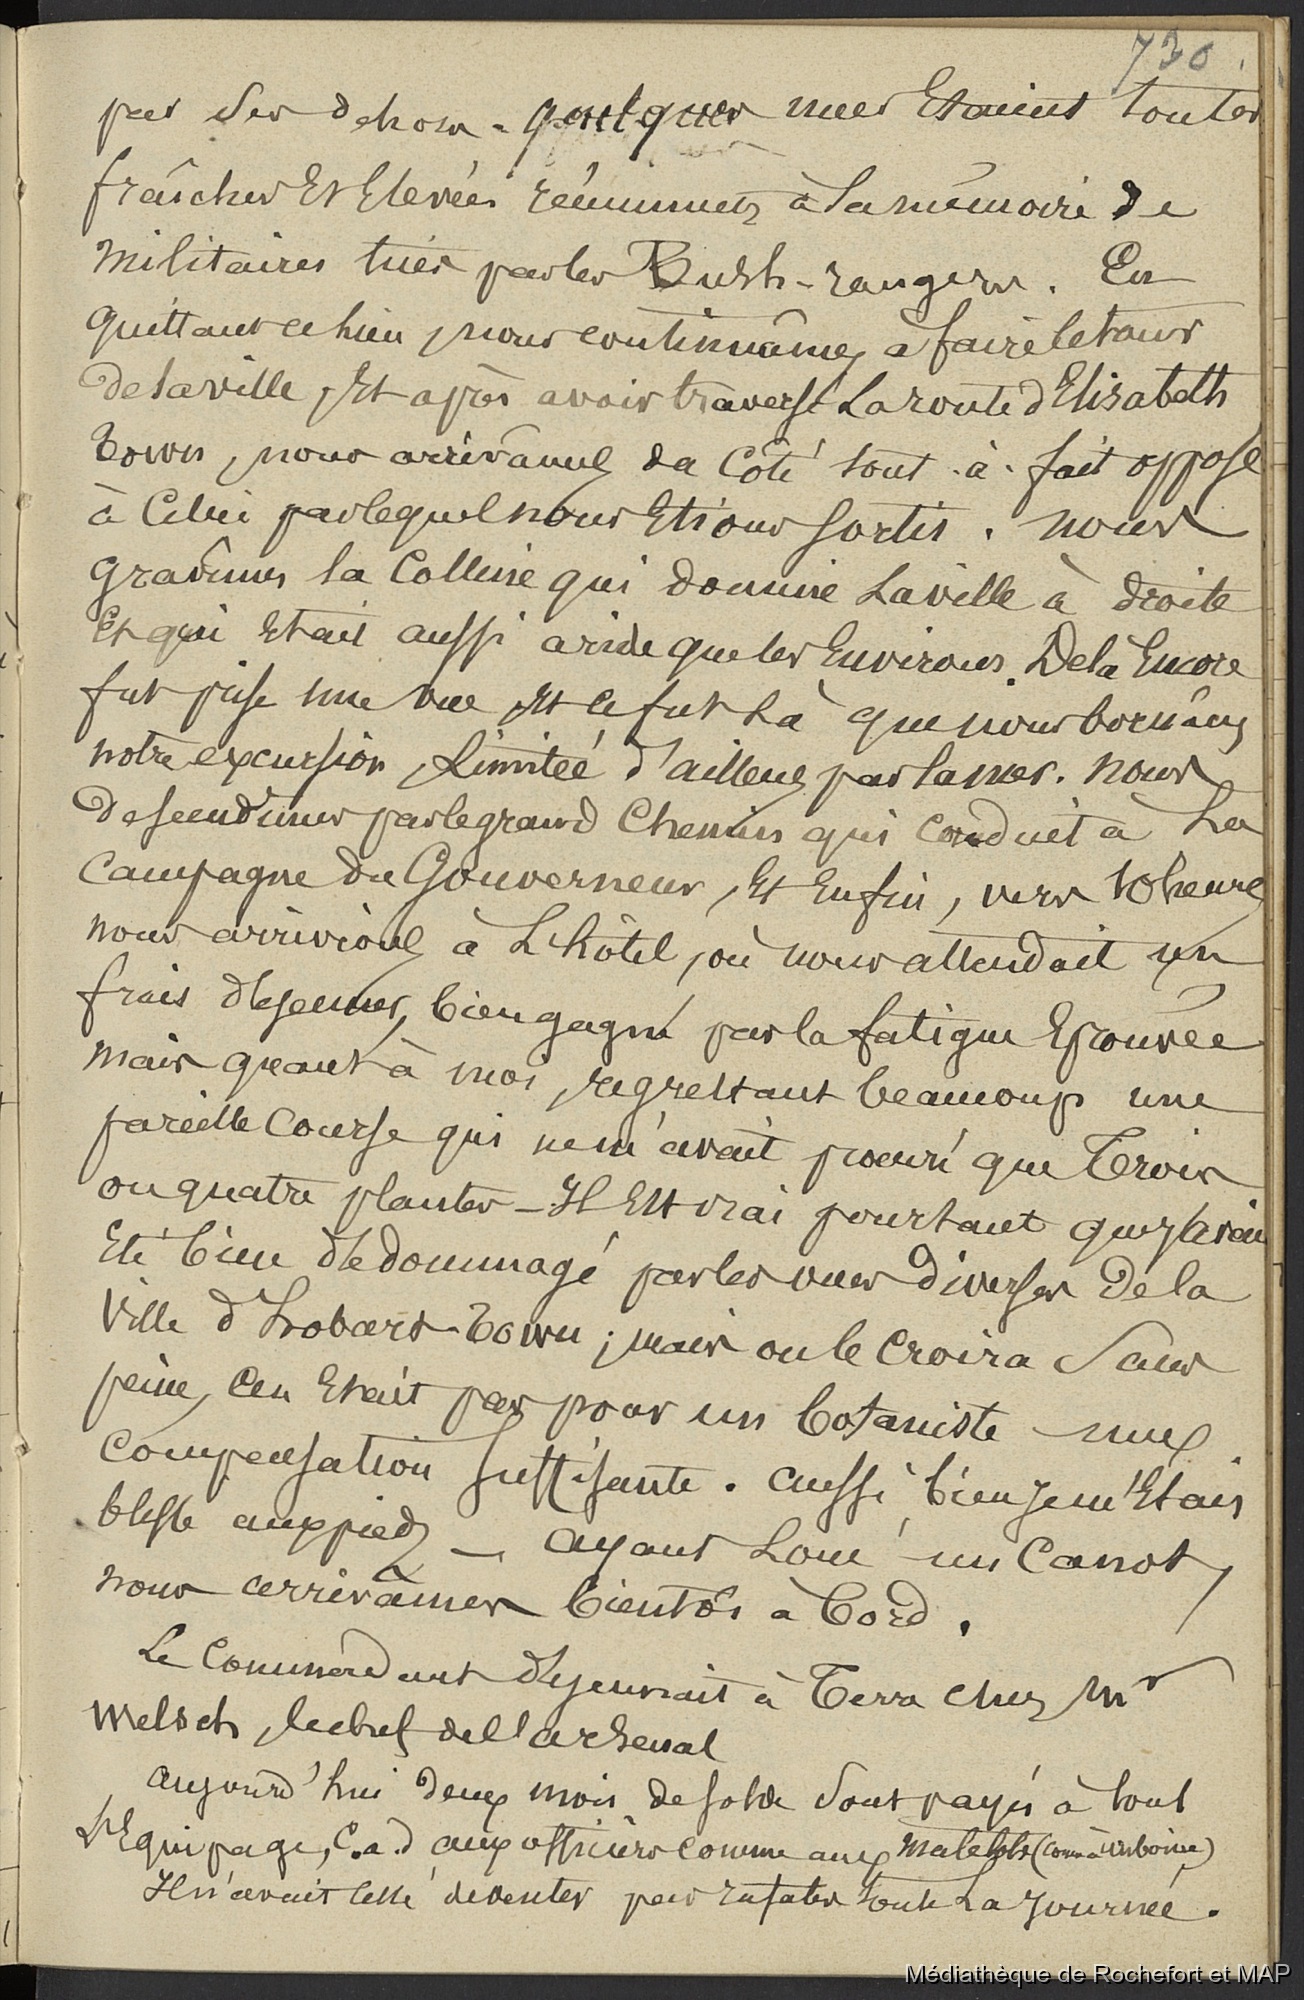 730
par ses dehors - quelques unes etaient toutes
fraîches Et Elevées récemment à la mémoire de
militaires tués par les Bush-rangers. En
quittant ce lieu, nous continuâmes à faire le tour
de la ville, Et après avoir traversé La route d'Elisabeth
Town, nous arrivâmes du Côté tout-à-fait opposé
à Celui par lequel nous Etions sortis. nous
gravîmes la Colline qui domine La ville à droite
Et qui Etait aussi aride que les Environs. De là Encore
fut prise une vue, Et ce fut Là que nous bornâmes
notre excursion, Limitée d'ailleurs par la mer. nous
descendîmes par le grand Chemin qui conduit à La
Campagne du Gouverneur, Et Enfin, vers 10 heures
nous arrivions à L'hôtel, où nous attendait un
frais déjeuner, bien gagné par la fatigue Eprouvée
mais quant à moi, regrettant beaucoup une
pareille Course qui ne m'avait procuré que Trois
ou quatre plantes - Il Est vrai pourtant que j'avais
Eté bien dédommagé par les vues diverses De la
Ville d'hobart-Town; mais on le Croira Sans
peine, C'en Etait pas pour un botaniste une
Compensation suffisante. aussi bien je m'Etais
blessé aux pieds - ayant Loué un Canot,
nous arrivâmes bientôt à bord.
Le Commandant déjeunait à Terre chez Mr
Welsch, le chef de l'arsenal
aujourd'hui deux mois de solde sont payés à tout
L'Equipage, C.a.d aux officiers comme aux matelots (comme à amboine)
Il n'avait cessé de venter par rafales toute La journée.
Médiathèque de Rochefort et MAP